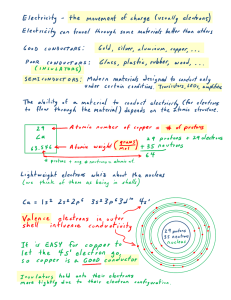 Electricity - the movement of charge (usually electrons)
Electricity can travel through some materials better than others
GOOD CONDUCTORS: Gold, silver, aluminum, copper, ...
POOR CONDUCTORS: Glass, plastic, rubber, wood, ...
(INSULATORS)
SEMICONDUCTORS: Modern materials designed to conduct only
under certain conditions. Transistors, LEDs, amplifiers
The ability of a material to conduct electricity (for electrons
to flow through the material) depends on the atomic structure.
29 ← Atomic number of copper = # of protons
Cu 29 protons + 29 electrons
63.546 ← Atomic Weight (grams/mol) + 35 neutrons
64
# protons + avg # neutrons in atomic nucl.
Lightweight electrons whirl about the nucleus
(we think of them as being in shells)
Cu = 1s² 2s² 2p⁶ 3s² 3p⁶ 3d¹⁰ 4s¹
Valence electrons in outer
shell influence conductivity
29 protons
35 neutrons
nucleus
It is EASY for copper to
let the 4s¹ electron go,
so copper is a GOOD conductor
Insulators hold onto their electrons
more tightly due to their electron configuration.